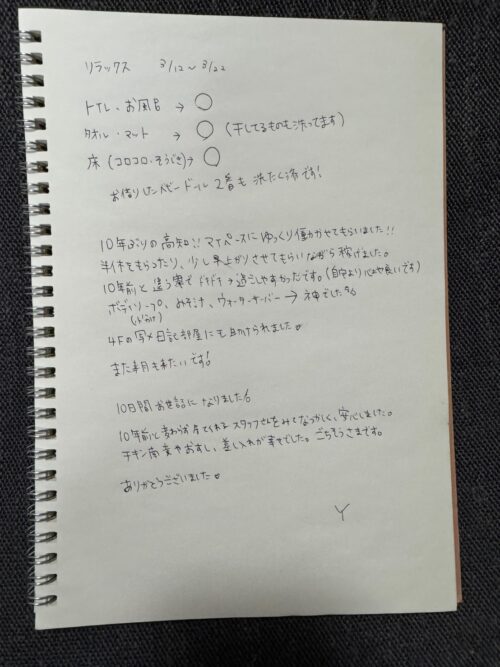 リラックス 3/12〜3/22
トイレ、お風呂 → ○
タオル・マット → ○ (干してるものも洗ってます)
床 (コロコロ・そうじき) → ○
お借りしたベビードール 2着も洗たく済です!
10年ぶりの高知!! マイペースにゆっくり働かせてもらいました!!
半休をもらったり、少し早上がりさせてもらいながら稼げました。
10年前と違う寮で ドキドキ 過ごしやすかったです。(自宅より心地良いです)
ボディソープ、みそ汁、ウォーターサーバー → 神でした
4Fの写メ日記部屋にも助けられました。
また来月も来たいです!
10日間お世話になりました
10年前と変わらず居てくれる スタッフさんをみてなつかしく、安心しました。
チキン南蛮やおすし、差し入れが幸せでした。ごちそうさまです。
ありがとうございました。
Y